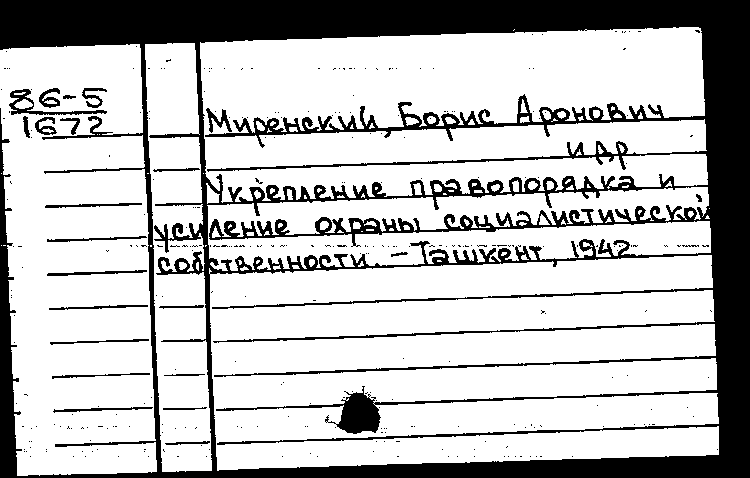 86-5
1672
Миренский, Борис Аронович
и др.
Укрепление правопорядка и
усиление охраны социалистической
собственности. - Ташкент, 1942